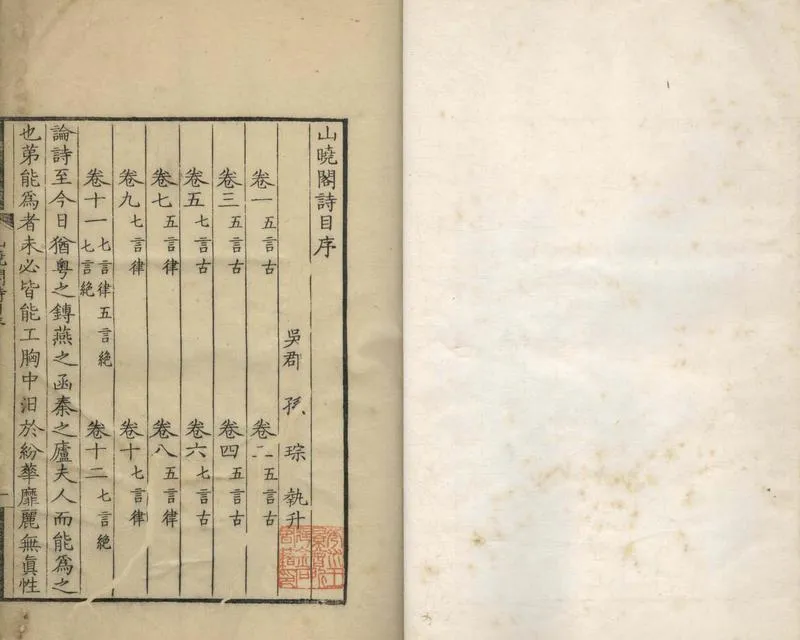 山曉閣詩目序
吳郡 孫 琮 執升
卷一五言古 卷二五言古
卷三五言古 卷四五言古
卷五七言古 卷六七言古
卷七五言律 卷八五言律
卷九七言律 卷十七言律
卷十一七言律五言絶七言絶 卷十二七言絶
論詩至今日猶粵之鎛燕之函秦之廬夫人而能爲之
也弟能爲者未必皆能工胸中汩於紛華靡麗無眞性